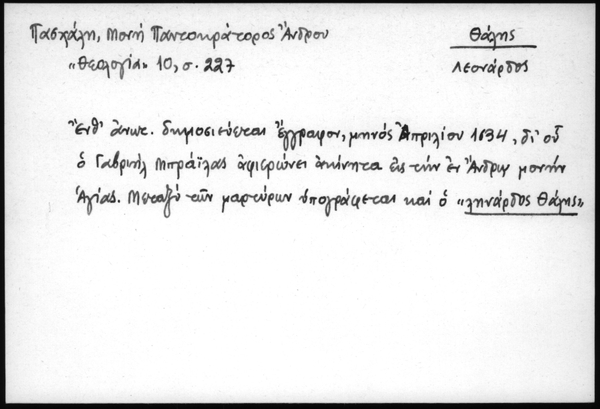 Πασχάλη, Μονή Παντοκράτορος Ἄνδρου
«Θεολογία» 10, σ. 227
Θάλης
Λεονάρδος
Ἔνθ' ἀνωτ. δημοσιεύεται ἔγγραφον, μηνός Ἀπριλίου 1634, δι' οὗ
ὁ Γαβριήλ Μπραΐλας ἀφιερώνει ἀκίνητα εἰς τήν ἐν Ἄνδρῳ μονήν
Ἁγίας. Μεταξύ τῶν μαρτύρων ὑπογράφεται καί ὁ «ληνάρδος Θάλης»